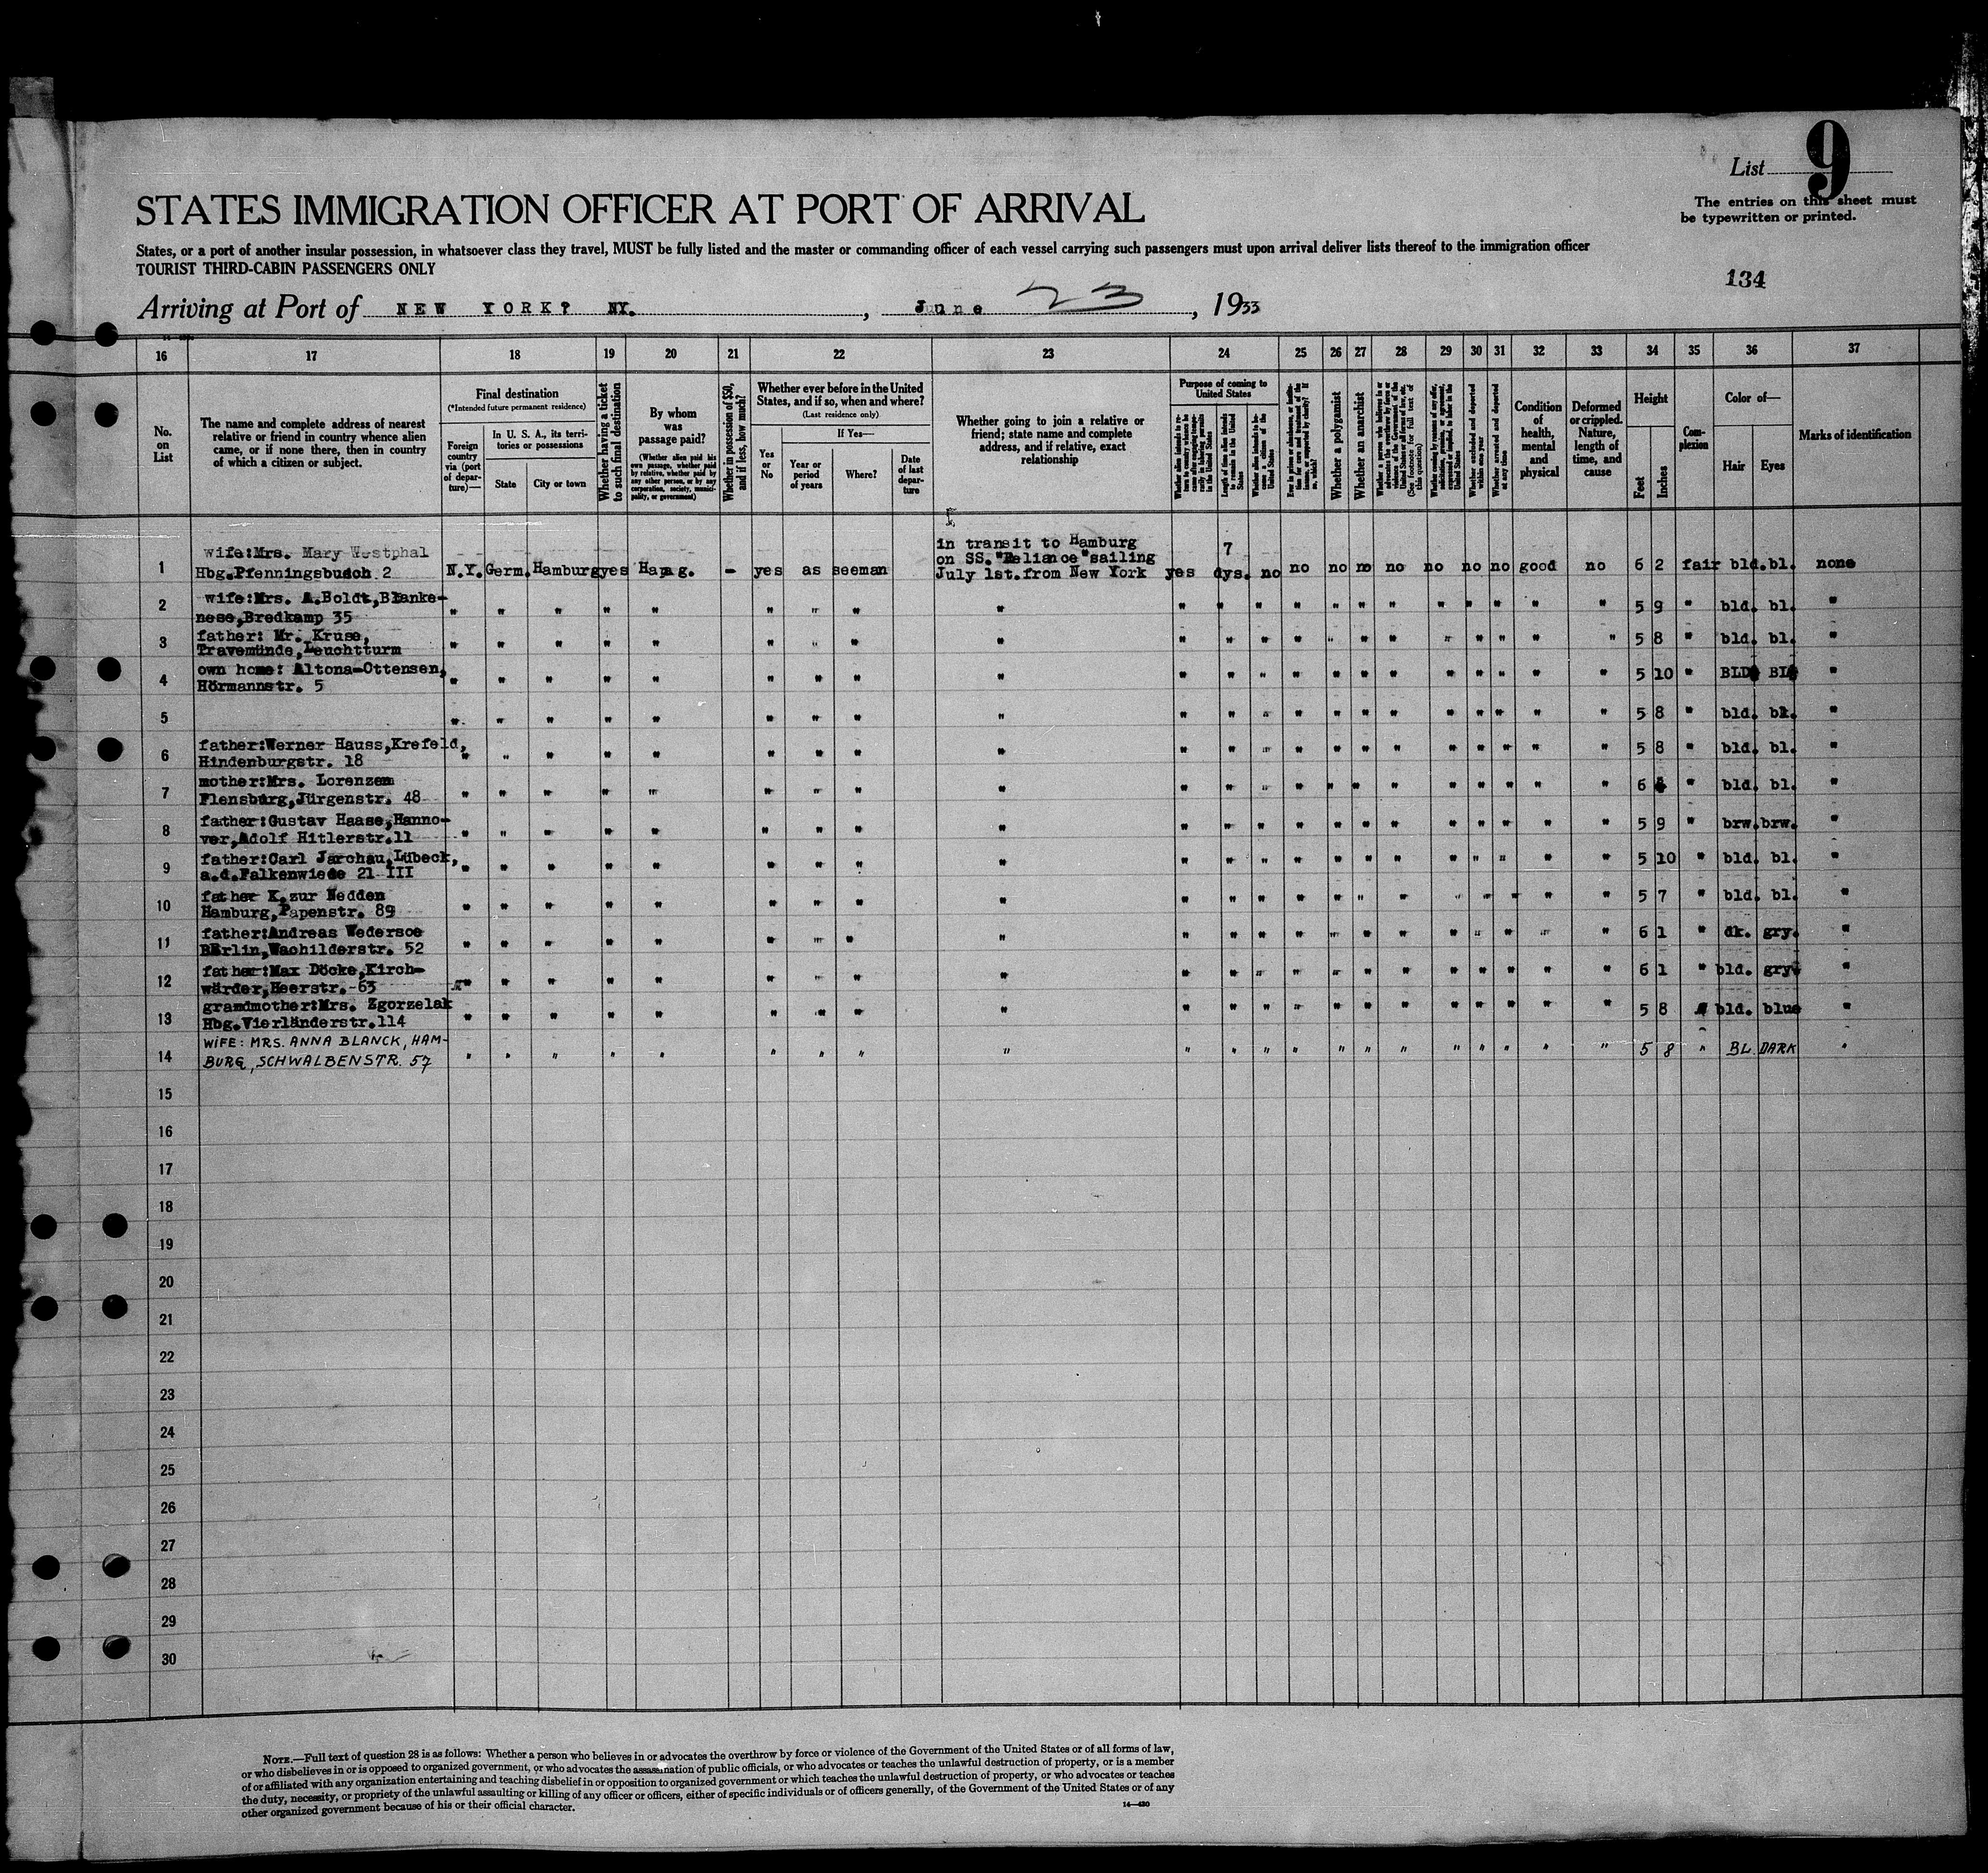 List 9
The entries on this sheet must
be typewritten or printed.
STATES IMMIGRATION OFFICER AT PORT OF ARRIVAL
States, or a port of another insular possession, in whatsoever class they travel, MUST be fully listed and the master or commanding officer of each vessel carrying such passengers must upon arrival deliver lists thereof to the immigration officer
TOURIST THIRD-CABIN PASSENGERS ONLY
134
Arriving at Port of NEW YORK? NY. , June 23 , 1933
16 17 18 19 20 21 22 23 24 25 26 27 28 29 30 31 32 33 34 35 36 37
No.
on
List
The name and complete address of nearest
relative or friend in country whence alien
came, or if none there, then in country
of which a citizen or subject.
Final destination
(*Intended future permanent residence)
Foreign
country
via (port
of depar-
ture)—
In U. S. A., its terri-
tories or possessions
State
City or town
Whether having a ticket
to such final destination
By whom
was
passage paid?
(Whether alien paid his
own passage, whether paid
by relative, whether paid by
any other person, or by any
corporation, society, munici-
pality, or government)
Whether in possession of $50,
and if less, how much?
Whether ever before in the United
States, and if so, when and where?
(Last residence only)
Yes
or
No
If Yes—
Year or
period
of years
Where?
Date
of last
depar-
ture
Whether going to join a relative or
friend; state name and complete
address, and if relative, exact
relationship
Purpose of coming to
United States
Length of time alien intends
to remain in the United
States
Whether alien intends to be-
come a citizen of the
United States
Whether a polygamist
Whether an anarchist
(See footnote for full text of
this question)
Whether excluded and deported
within one year
Whether arrested and deported
at any time
Condition
of
health,
mental
and
physical
Deformed
or crippled.
Nature,
length of
time, and
cause
Height
Feet
Inches
Com-
plexion
Color of—
Hair
Eyes
Marks of identification
1 wife:Mrs. Mary Westphal
Hbg.Pfenningsbusch 2 N.Y. Germ. Hamburg yes Hapag. - yes as seeman
in transit to Hamburg
on SS."Reliance"sailing
July 1st.from New York yes 7 dys. no no no no no no no no good no 6 2 fair bld. bl. none
2 wife:Mrs. A.Boldt,Blanke-
nese,Bredkamp 35 " " " " " " " " " " " " " " " " " " " " " " 5 9 " bld. bl. "
3 father: Mr. Kruse,
Travemünde,Leuchtturm " " " " " " " " " " " " " " " " " " " " " " 5 8 " bld. bl. "
4 own home: Altona-Ottensen,
Hörmannstr. 5 " " " " " " " " " " " " " " " " " " " " " " 5 10 " BLD BL "
5 " " " " " " " " " " " " " " " " " " " " " " 5 8 " bld. "
6 father:Werner Hauss,Krefeld,
Hindenburgstr. 18 " " " " " " " " " " " " " " " " " " " " " " 5 8 " bld. bl. "
7 mother:Mrs. Lorenzen
Flensburg,Jürgenstr. 48 " " " " " " " " " " " " " " " " " " " " " " 6 " bld. bl. "
8 father:Gustav Haase,Hanno-
ver,Adolf Hitlerstr.11 " " " " " " " " " " " " " " " " " " " " " " 5 9 " brw. brw. "
9 father:Carl Jarchau,Lübeck,
a.d.Falkenwiede 21 III " " " " " " " " " " " " " " " " " " " " " " 5 10 " bld. bl. "
10 father K.zur Nedden
Hamburg,Papenstr. 89 " " " " " " " " " " " " " " " " " " " " " " 5 7 " bld. bl. "
11 father:Andreas Wedersoe
BErlin,Wachilderstr. 52 " " " " " " " " " " " " " " " " " " " " " " 6 1 " dk. gry. "
12 father:Max Döcke,Kirch-
wärder,Heerstr.-63 " " " " " " " " " " " " " " " " " " " " " " 6 1 " bld. gry "
13 grandmother:Mrs. Zgorzelak
Hbg.Vierländerstr.114 " " " " " " " " " " " " " " " " " " " " " " 5 8 " bld. blue "
14 WIFE: MRS. ANNA BLANCK, HAM-
BURG, SCHWALBENSTR. 57 " " " " " " " " " " " " " " " " " " " " " " 5 8 " BL DARK "
15
16
17
18
19
20
21
22
23
24
25
26
27
28
29
30
NOTE.—Full text of question 28 is as follows: Whether a person who believes in or advocates the overthrow by force or violence of the Government of the United States or of all forms of law,
or who disbelieves in or is opposed to organized government, or who advocates the assassination of public officials, or who advocates or teaches the unlawful destruction of property, or is a member
of or affiliated with any organization entertaining and teaching disbelief in or opposition to organized government or which teaches the unlawful destruction of property, or who advocates or teaches
the duty, necessity, or propriety of the unlawful assaulting or killing of any officer or officers, either of specific individuals or of officers generally, of the Government of the United States or of any
other organized government because of his or their official character.
14—430